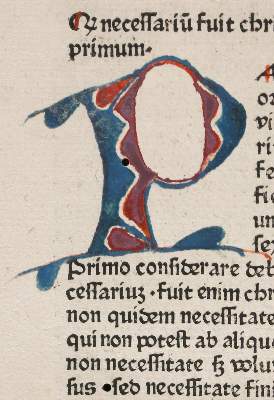 Qꝙ neceſſariū fuit chri
primum·
P
or
vi
ri
fe
fi
un
ſe
Primo conſiderare deb
ceſſariuꝫ ·fuit enim chr
non quidem neceſſitate
qui non poteſt ab aliqu
non neceſſitate ſꝫ volu
ſus ·ſed neceſſitate fini